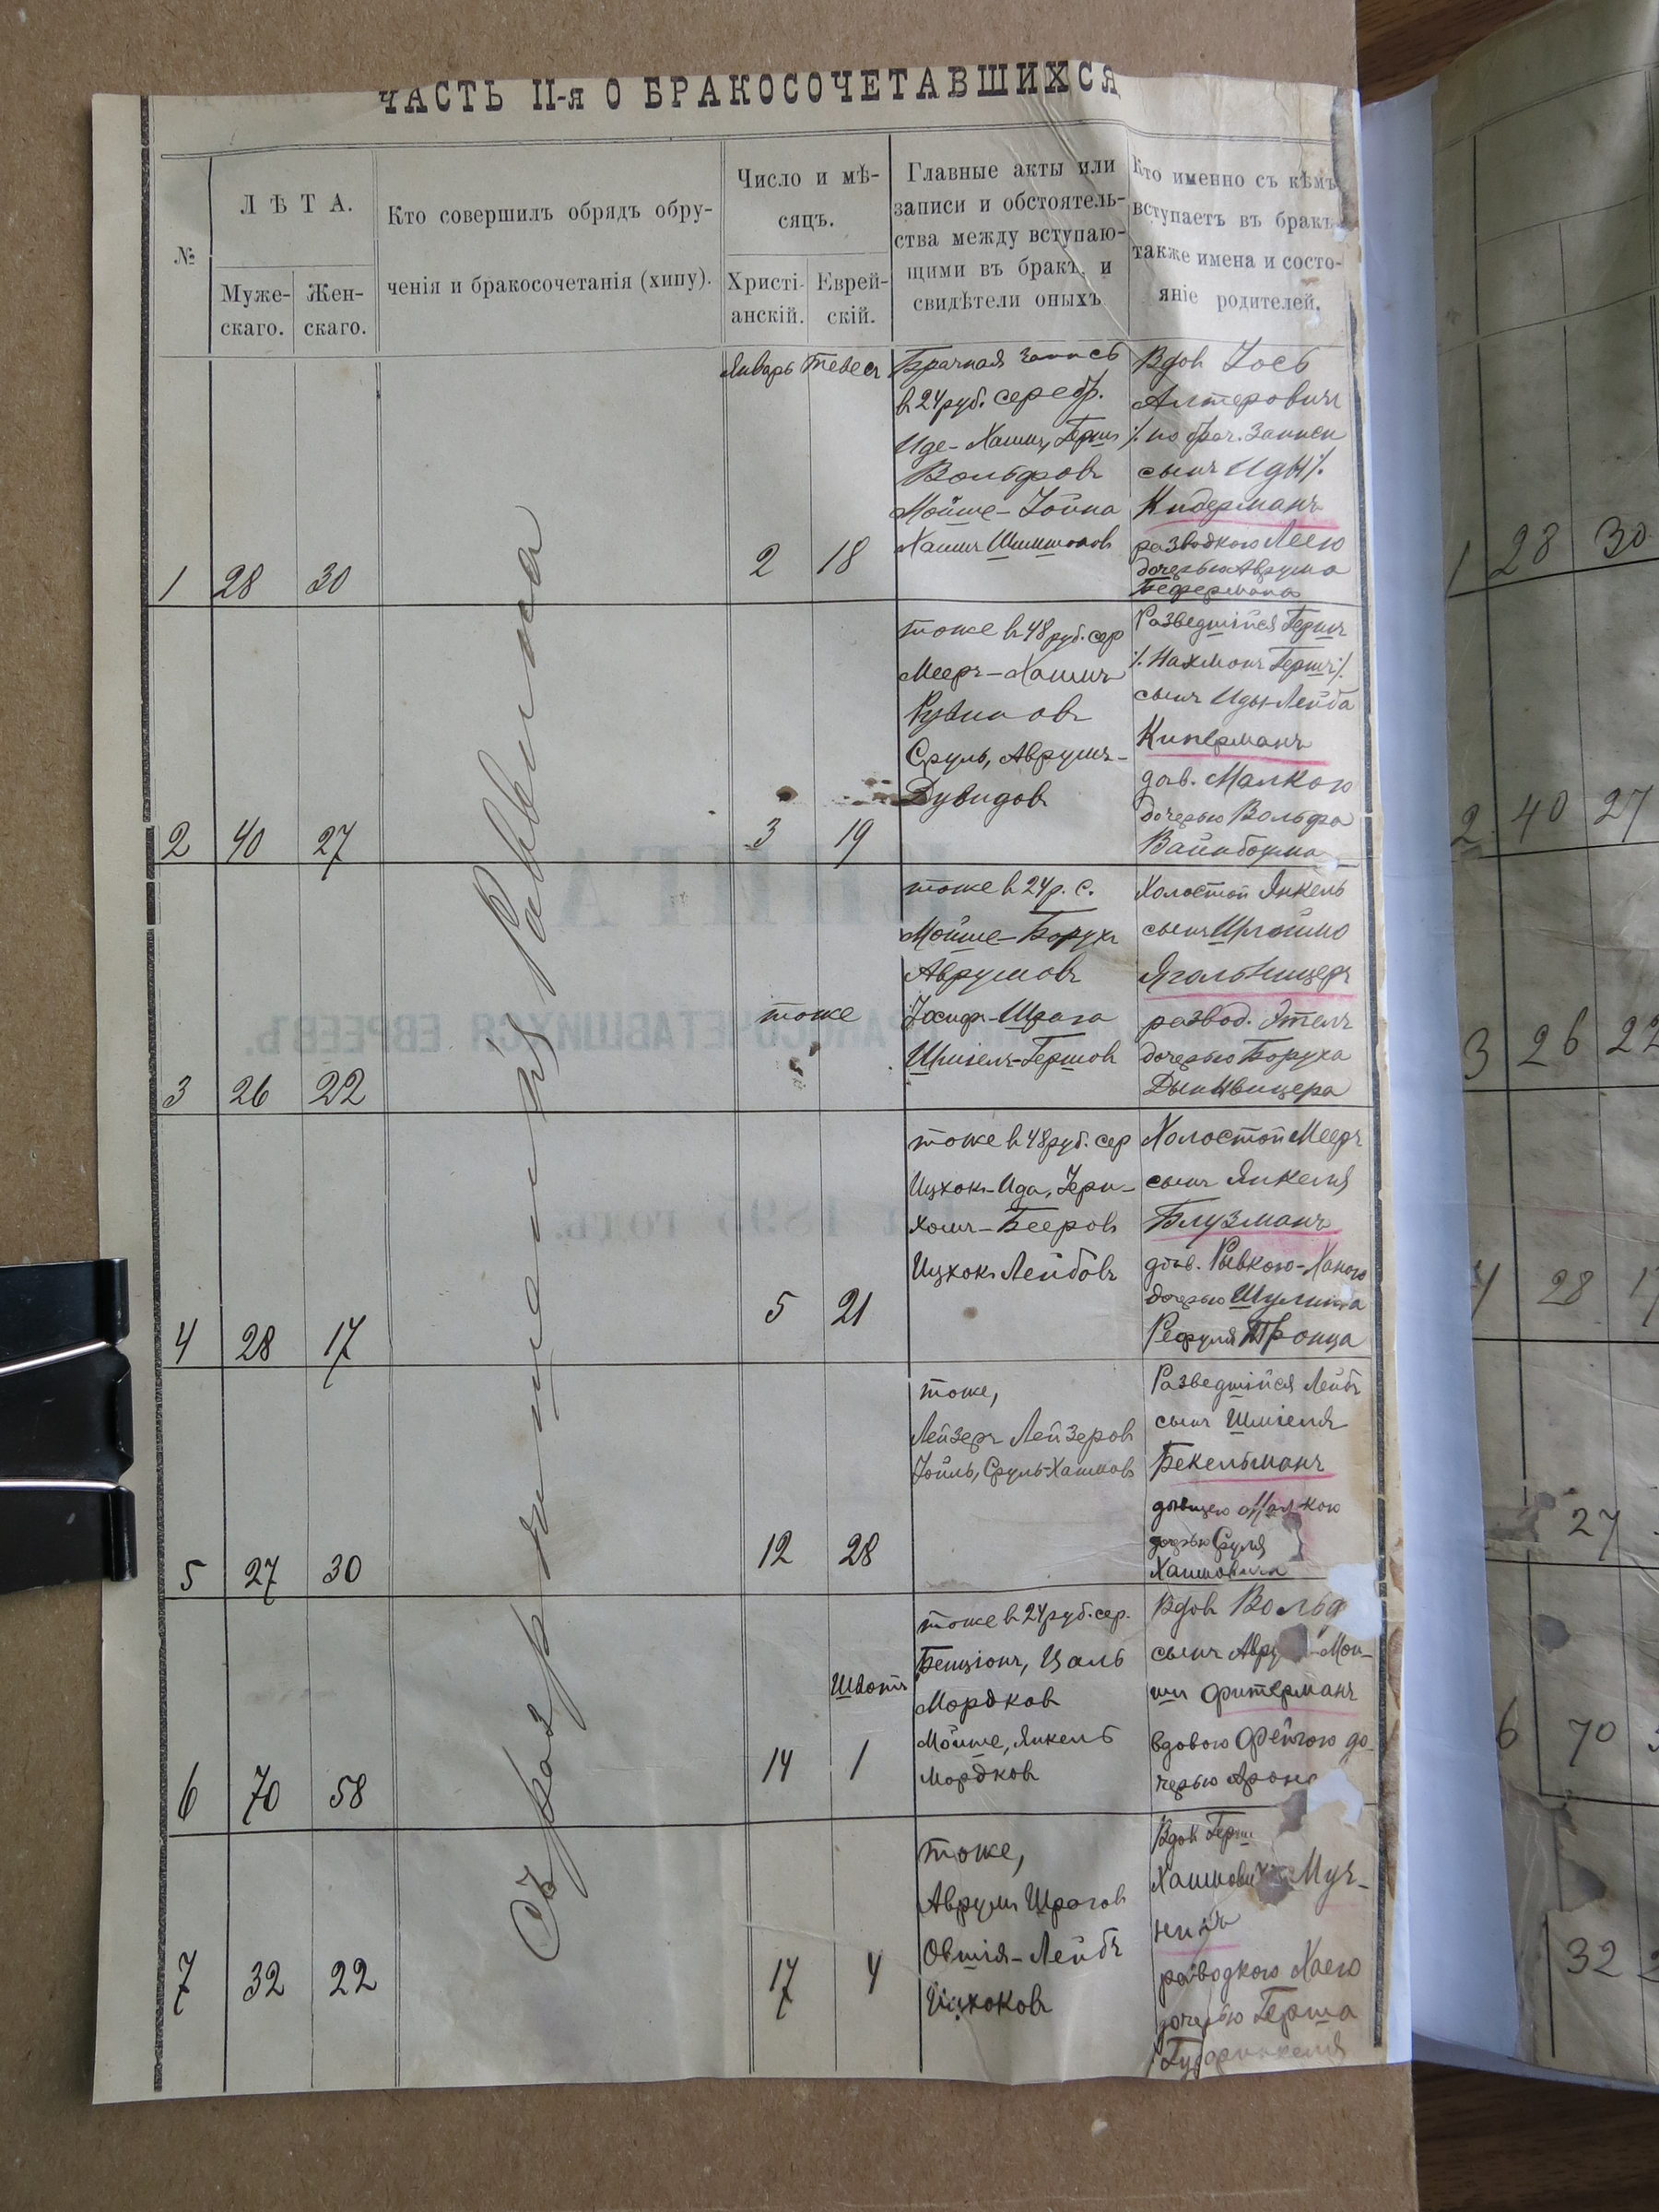 ЧАСТЬ II-я О БРАКОСОЧЕТАВШИХСЯ
№
ЛѢТА.
Муже-
скаго.
Жен-
скаго.
Кто совершилъ обрядъ обру-
ченія и бракосочетанія (хипу).
Число и мѣ-
сяцъ.
Христі-
анскій.
Еврей-
скій.
Главные акты или
записи и обстоятель-
ства между вступаю-
щими въ бракъ, и
свидѣтели оныхъ
Кто именно съ кѣмъ
вступаетъ въ бракъ
также имена и состо-
яніе родителей.
Съ разрѣшенія Раввина
1 28 30
Январь Тевес
2 18
Брачная запись
в 24 руб. серебр.
Иде-Хаимъ, Герш
Вольфовъ
Мойше-Іойна
Хаимъ Шимшонов
Вдов Іось
Алтеровичъ
%. по брач. записи
сынъ Иды %.
Кидерманъ
разводкою Леею
дочерью Аврума
Бефермана
2 40 27
3 19
тоже в 48 руб. сер
Мееръ-Хаимъ
Рувинов
Сруль, Аврумъ-
Дувидов
Разведшійся Гершъ
%. Нахманъ Гершъ %.
сынъ Иды-Лейба
Киперманъ
дѣв. Малкою
дочерью Вольфа
Вайнбойма
3 26 22
тоже
тоже в 24 р. с.
Мойше-Борухъ
Аврумовъ
Іосиф-Шрага
Шміелъ-Гершов
Холостой Янкель
сынъ Шлоймо
Ягольницеръ
развод. Этелъ
дочерью Боруха
4 28 17
5 21
тоже в 48 руб. сер
Ицхок-Ида,
Бееров
Ицхокъ Лейбовъ
Холостой Мееръ
сынъ Янкеля
Блузманъ
дѣв. Рывкою-Ханою
дочерью Шулима
Рефуля Тройца
5 27 30
12 28
тоже,
Лейзеръ Лейзеров
Іойль, Сруль-Хаимов
Разведшійся Лейбъ
сынъ Шміеля
Бекельманъ
дѣвицею Малкою
дочерью Сруля
Хаимовича
6 70 58
Шватъ
14 1
тоже в 24 руб. сер.
Бенціонъ, Цаль
Мордков
Мойше, Янкель
Мордков
Вдов Вольф
сынъ Авру Мой-
ши Фитерманъ
вдовою Фейгою до-
черью Арона
7 32 22
17 4
тоже,
Аврумъ Шрагов
Овшія-Лейбъ
Ицхоковъ
Вдов Герш
Хаимовичъ Муч-
никъ
разводкою Хаею
дочерью Герша
Гурфинкеля
1 28 30
2 40 27
3 26 22
4 28
27
6 70
32